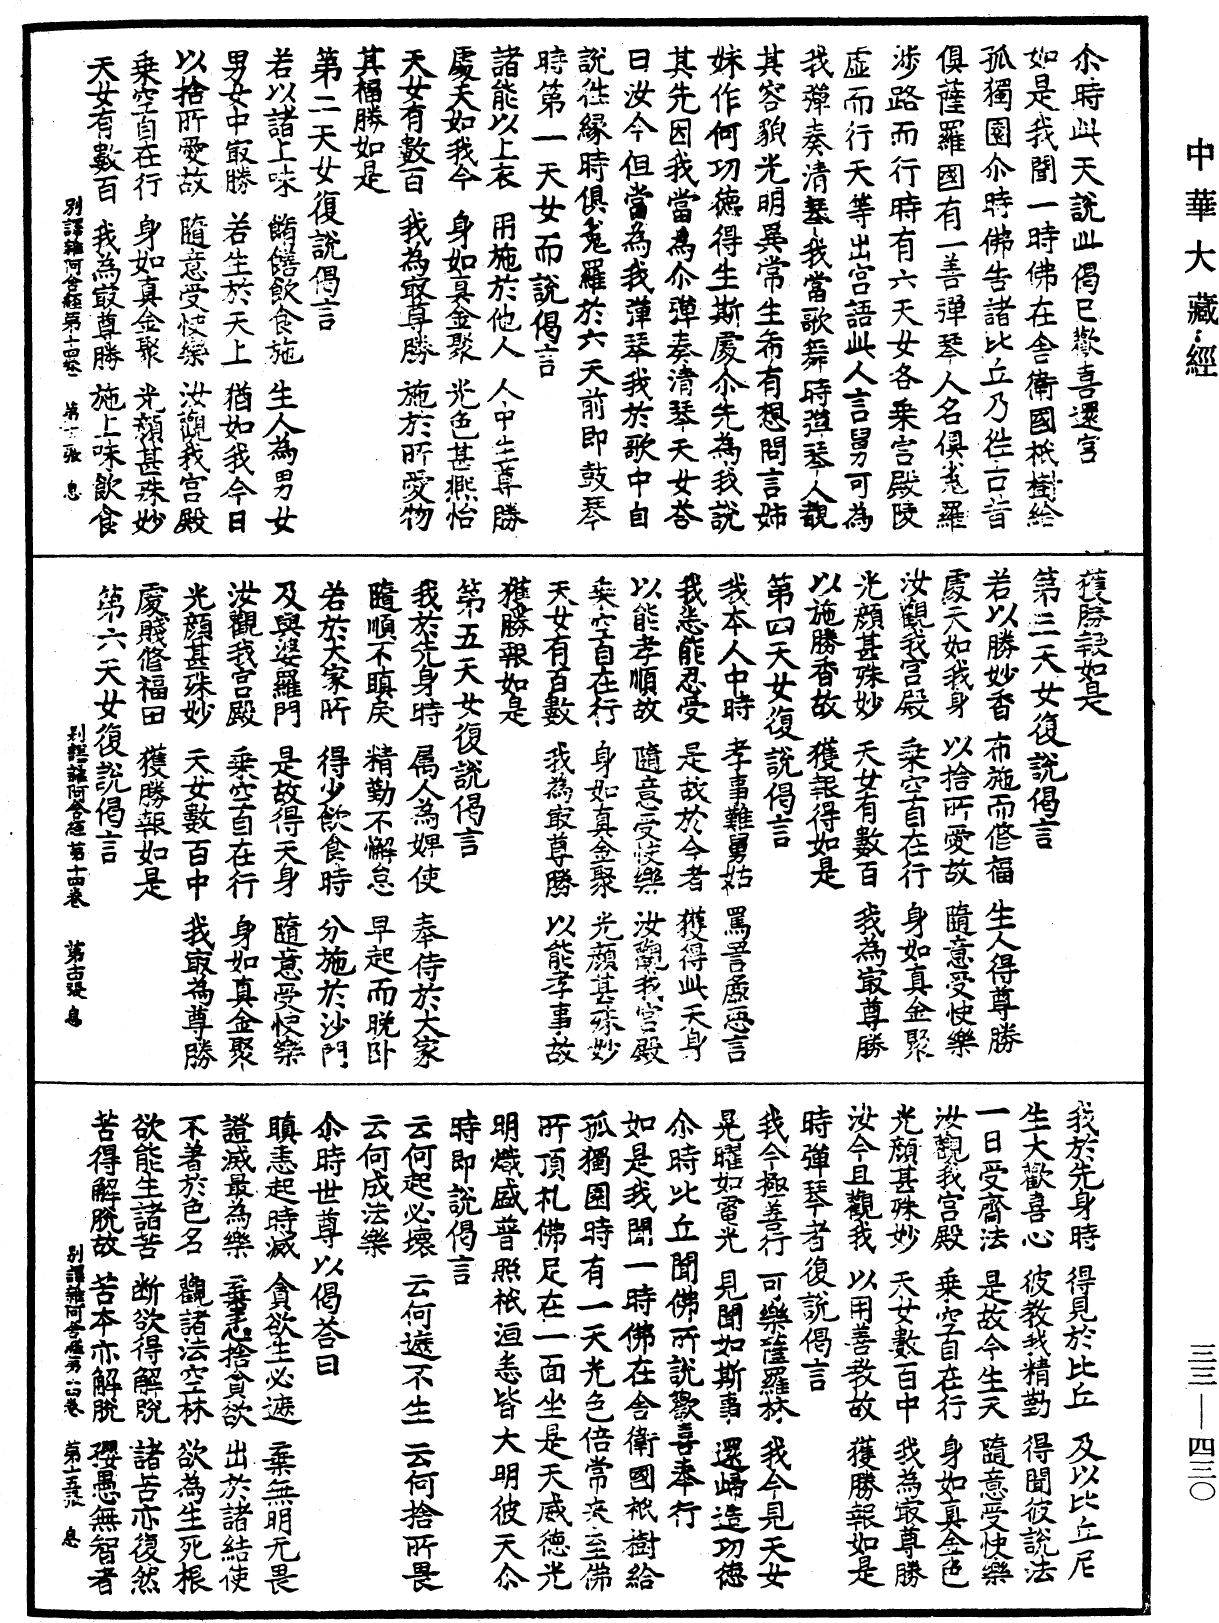 中華大藏經
尒時此天說此偈已歡喜還宮
如是我聞一時佛在舍衛國祇樹給
孤獨園尒時佛告諸比丘乃徃古昔
俱薩羅國有一善彈琴人名俱㝹羅
涉路而行時有六天女各乘宮殿陵
虛而行天等出宮語此人言舅可為
我彈奏清琴我當歌舞時彈琴人覩
其容貌光明異常生希有想問言姊
妹作何功德得生斯處尒先為我說
其先因我當為尒彈奏清琴天女荅
曰汝今但當為我彈琴我於歌中自
說徃緣時俱㝹羅於六天前即鼓琴
時第一天女而說偈言
諸能以上衣 用施於他人 人中生尊勝
處天如我今 身如真金聚 光色甚熈怡
天女有數百 我為㝡尊勝 施於所愛物
其福勝如是
第二天女復說偈言
若以諸上味 餚饍飲食施 生人為男女
男女中㝡勝 若生於天上 猶如我今日
以捨所愛故 隨意受快樂 汝觀我宮殿
乘空自在行 身如真金聚 光顏甚殊妙
天女有數百 我為㝡尊勝 施上味飲食
別譯雜阿含經第十四卷 第十三張 息
獲勝報如是
第三天女復說偈言
若以勝妙香 布施而修福 生人得尊勝
處天如我身 以捨所愛故 隨意受快樂
汝觀我宮殿 乘空自在行 身如真金聚
光顏甚殊妙 天女有數百 我為㝡尊勝
以施勝香故 獲報得如是
第四天女復說偈言
我本人中時 孝事難舅姑 罵詈麁惡言
我悉能忍受 是故於今者 獲得此天身
以能孝順故 隨意受快樂 汝觀我宮殿
乘空自在行 身如真金聚 光顏甚殊妙
天女有百數 我為㝡尊勝 以能孝事故
獲勝報如是
第五天女復說偈言
我於先身時 屬人為婢使 奉侍於大家
隨順不瞋戾 精勤不懈怠 早起而晚卧
若於大家所 得少飲食時 分施於沙門
及與婆羅門 是故得天身 隨意受快樂
汝觀我宮殿 乘空自在行 身如真金聚
光顏甚殊妙 天女數百中 我㝡為尊勝
處賤修福田 獲勝報如是
第六天女復說偈言
別譯雜阿含經第十四卷 第十四張 息
我於先身時 得見於比丘 及以比丘尼
生大歡喜心 彼教我精勤 得聞彼說法
一日受齋法 是故今生天 隨意受快樂
汝觀我宮殿 乘空自在行 身如真金色
光顏甚殊妙 天女數百中 我為㝡尊勝
汝今且觀我 以用善教故 獲勝報如是
時彈琴者復說偈言
我今極善行 可樂薩羅林 我今見天女
晃曜如電光 見聞如斯事 還歸造功德
尒時比丘聞佛所說歡喜奉行
如是我聞一時佛在舍衛國祇樹給
孤獨園時有一天光色倍常來至佛
所頂札佛足在一面坐是天威德光
明熾盛普照祇洹悉皆大明彼天尒
時即說偈言
云何起必壞 云何遮不生 云何捨所畏
云何成法樂
尒時世尊以偈荅曰
瞋恚起時滅 貪欲生必遮 棄無明无畏
證滅最為樂 棄恚捨貪欲 出於諸結使
不著於色名 觀諸法空林 欲為生死根
欲能生諸苦 断欲得解脫 諸苦亦復然
苦得解脫故 苦本亦解脫 瓔愚無智者
別譯雜阿含經第十四卷 第十五張 息
三三—四三〇